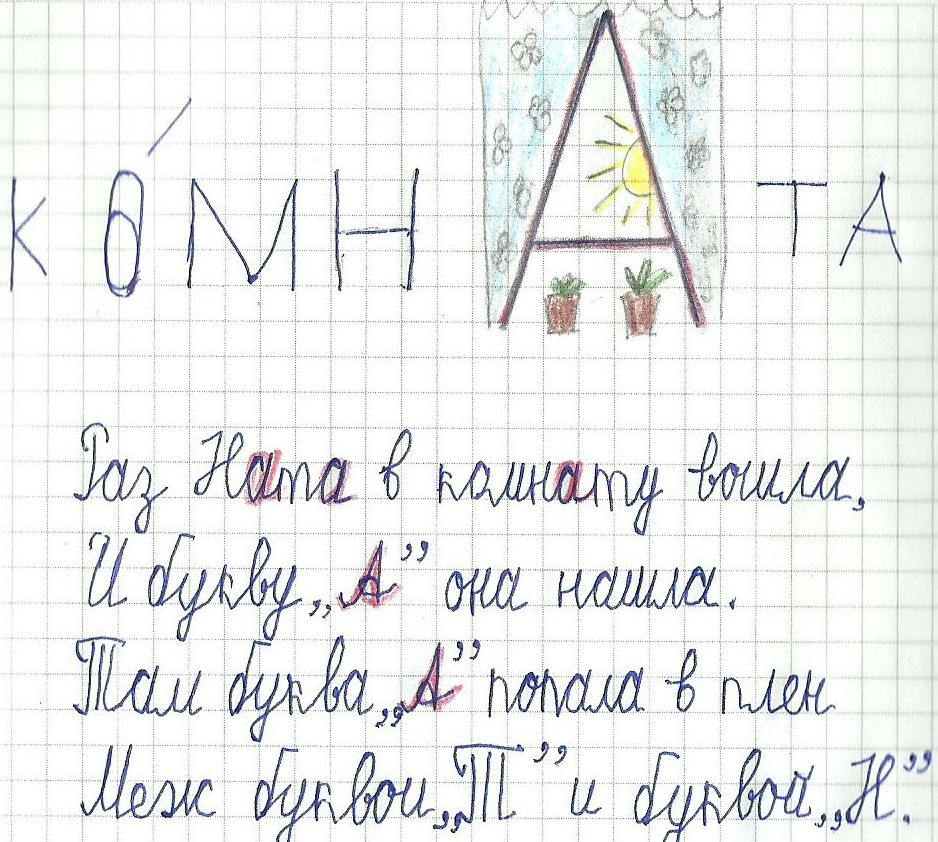 КО́МНАТА
Раз Ната в комнату вошла,
И букву „А” она нашла.
Там буква „А” попала в плен
Меж буквой „Т” и буквой „Н”.